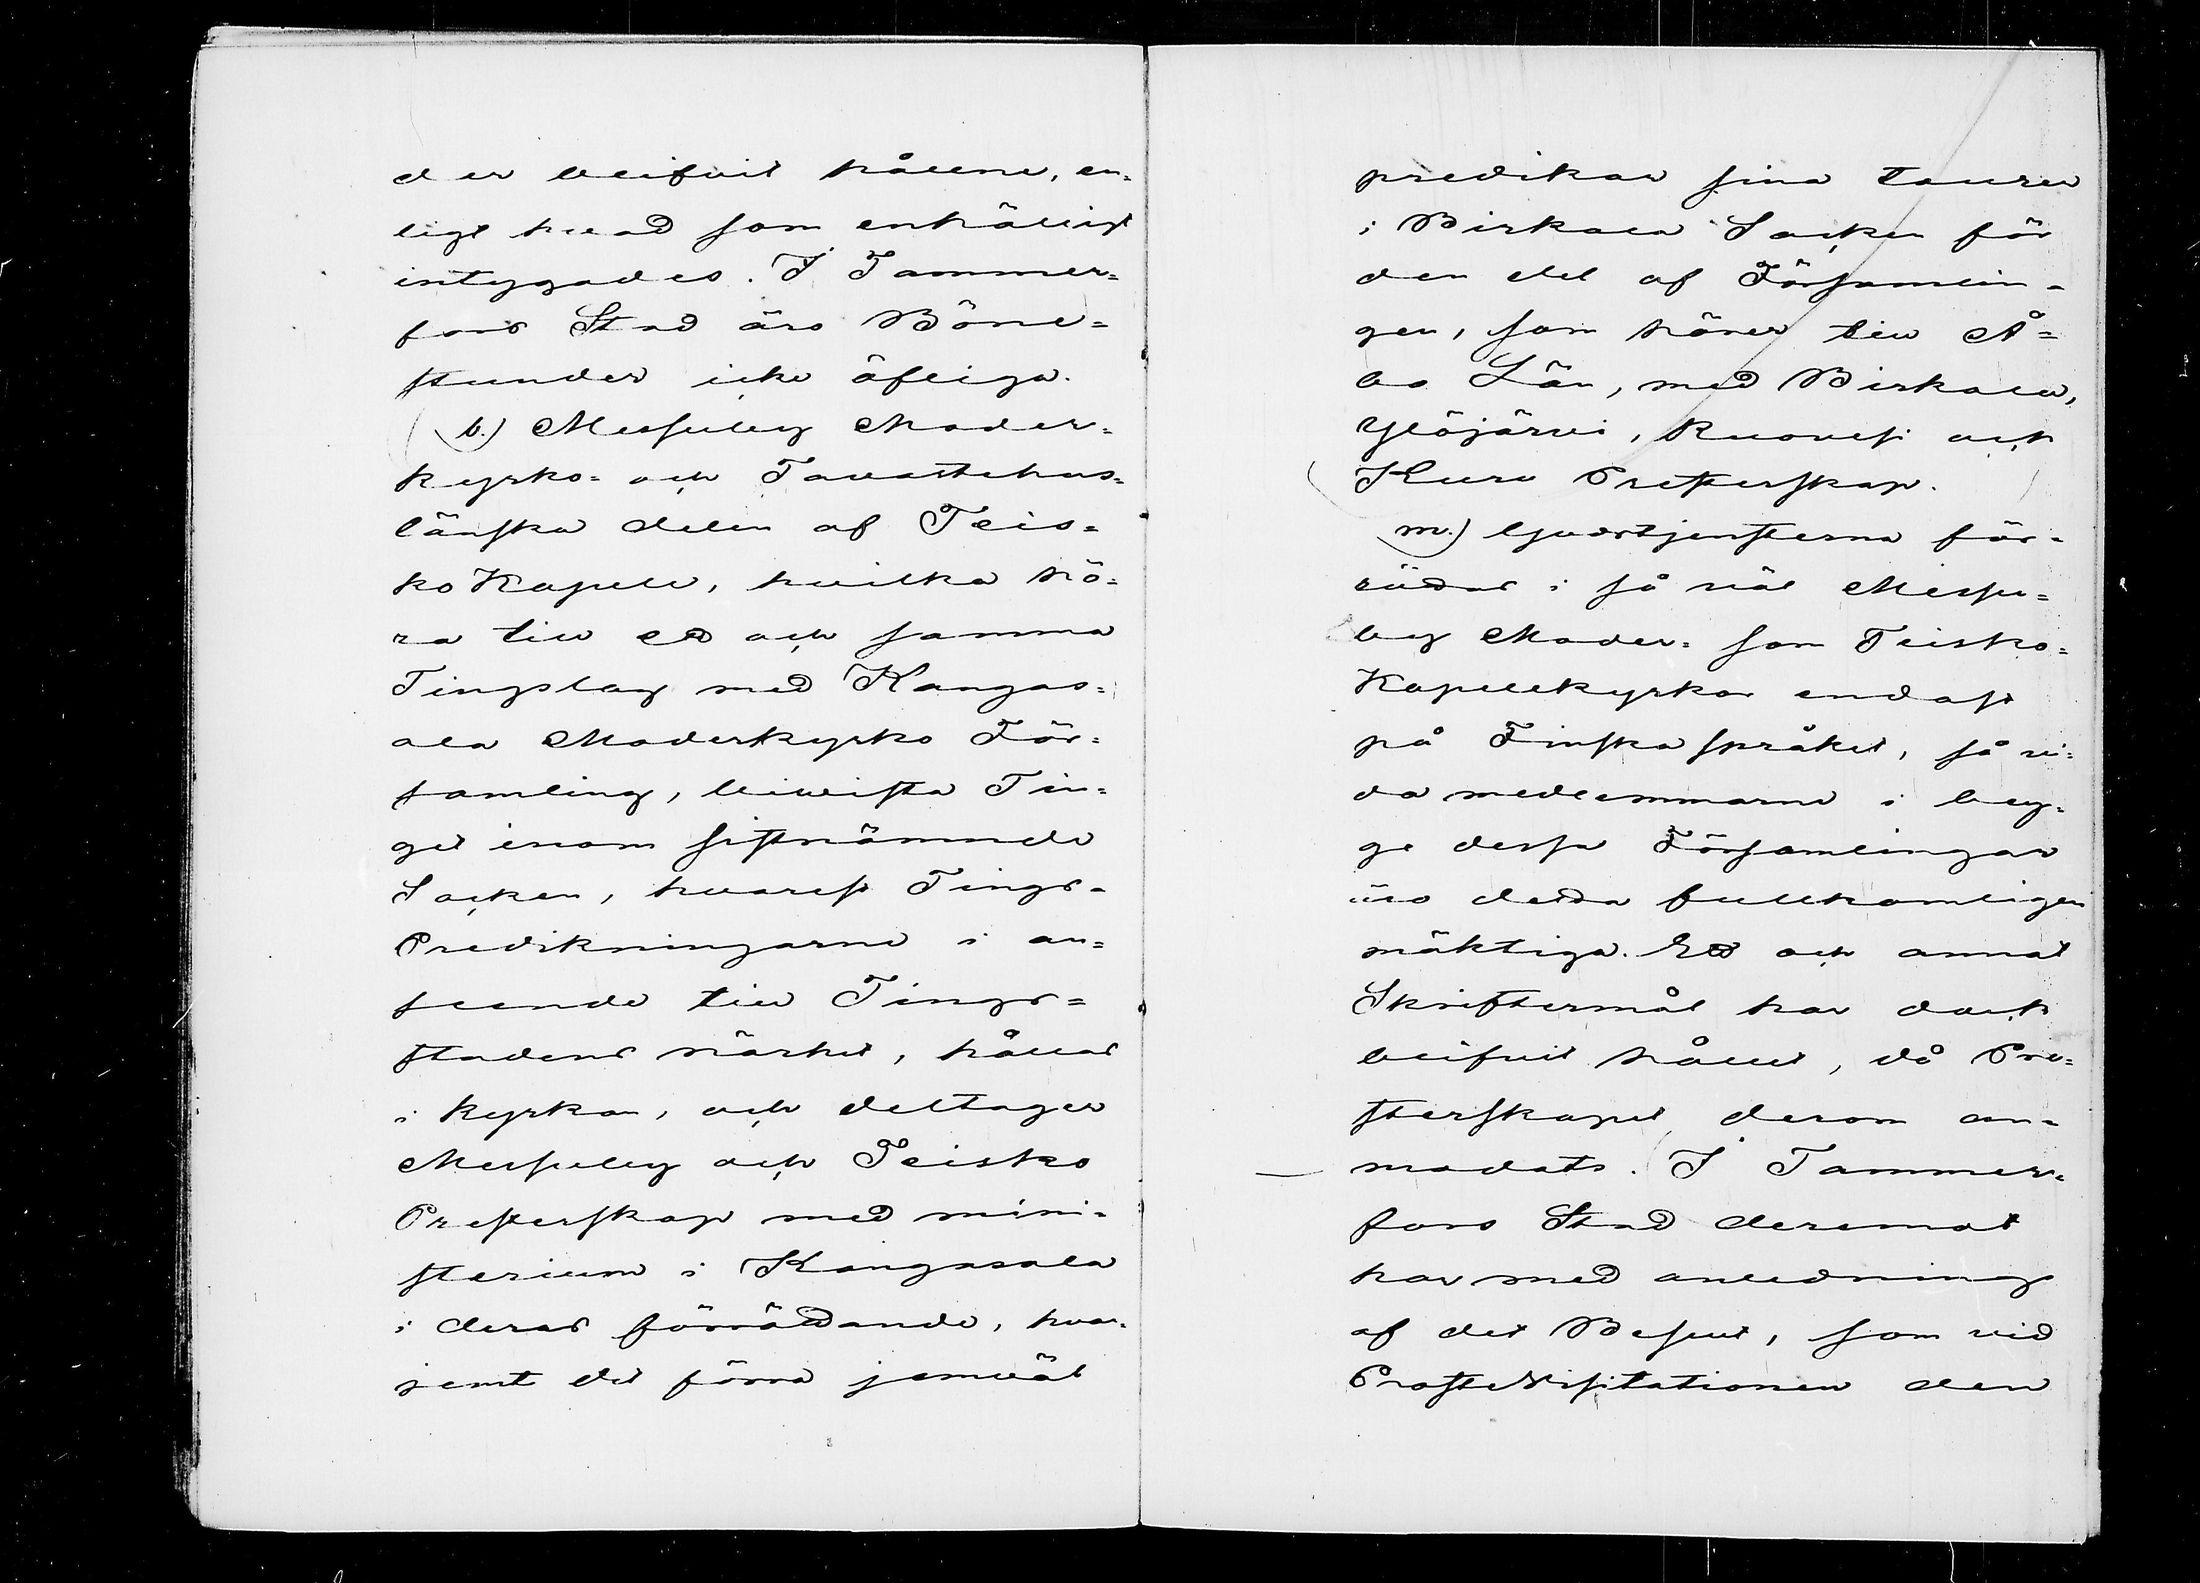 der blifvit hållne, en=
ligt hvad som enhälligt
intygades. I Tammer=
fors Stad äro Böne=
stunder icke öfliga.
l.) Messuby Moder=
kyrko= och Tavastehus=
länska delen af Teis=
ko Kapell, hvilka hö=
ra till ett och samma
Tingslag med Kangas=
ala Moderkyrko För=
samling, bivista Tin=
get inom sistnämnde
Socken, hvarest Tings=
Predikningarne i an=
seende till Tings=
stadens närhet, hållas
i kyrkan, och deltager
Messuby och Teisko
Presterskap med mini=
sterium i Kangasala
i deras förrättande, hvar=
jemt det förra jemväl
predikar sina tourer
i Birkala Socken för
den del af Församlin=
gen, som hörer till Å=
bo Län, med Birkala,
Ylöjärvi, Ruovesi och
Kuru Presterskap.
m.) Gudstjensterna för=
rättas i så väl Messu=
by Moder= som Teisko=
Kapellkyrkor endast
på Finska språket, så vi=
da medlemmarne i beg=
ge dessa Församlingar
äro detta fullkomligen
mäktiga. Ett och annat
Skriftermål har dock
blifvit hållet, då Pre=
sterskapet derom an=
modats. I Tammer=
fors Stad deremot
har med anledning
af det Beslut, som vid
ProsteVisitationen den